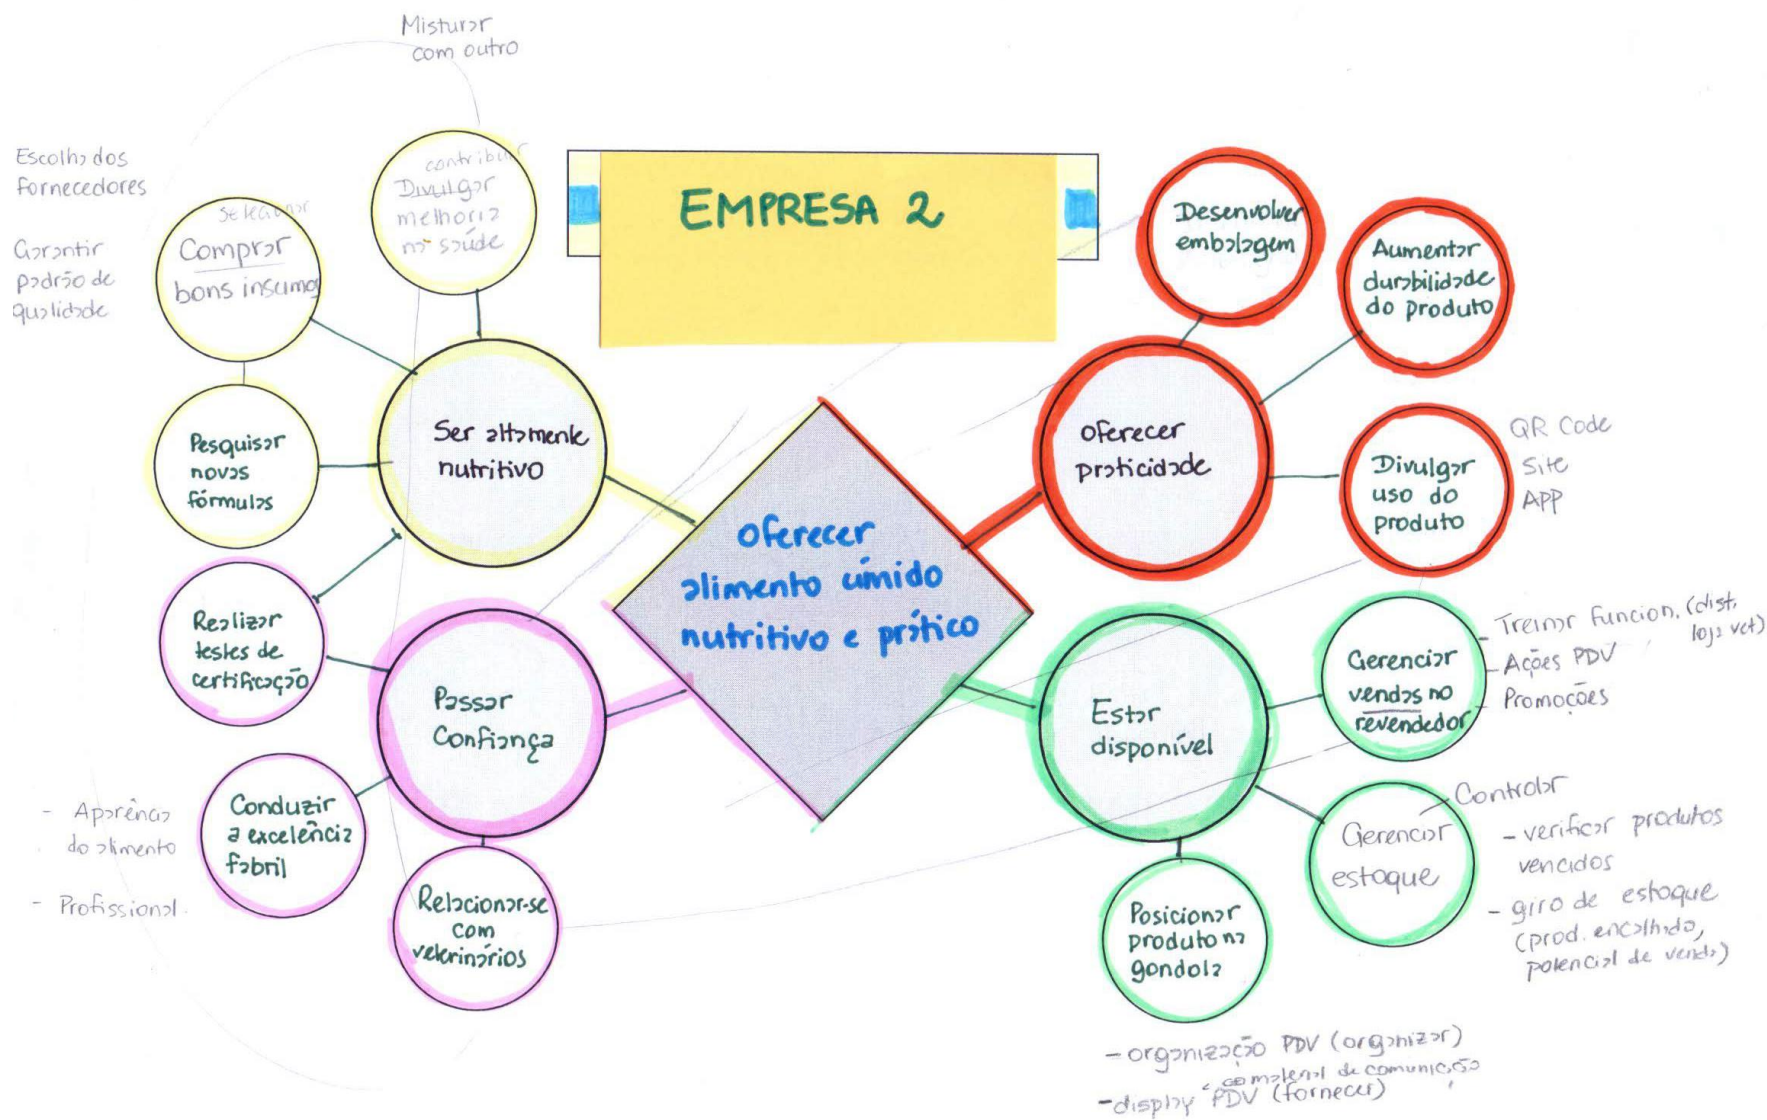 Misturar
com outro
Escolha dos
fornecedores
Garantir
padrão de
qualidade
selecionar
Comprar
bons insumos
contribuir
Divulgar
melhoria
na saúde
EMPRESA 2
Desenvolver
embalagem
Aumentar
durabilidade
do produto
Pesquisar
novas
fórmulas
Ser altamente
nutritivo
oferecer
praticidade
Divulgar
uso do
produto
QR Code
Site
APP
oferecer
alimento úmido
nutritivo e prático
Realizar
testes de
certificação
Passar
Confiança
Estar
disponível
Gerenciar
vendas no
revendedor
- Treinar funcion. (dist,
loja vet)
- Ações PDV
- Promoções
- Aparência
do alimento
- Profissional.
Conduzir
a excelência
fabril
Relacionar-se
com
veterinários
Posicionar
produto na
gondola
Gerenciar
estoque
Controlar
- verificar produtos
vencidos
- giro de estoque
(prod. encalhado,
potencial de venda)
- organização PDV (organizar)
material de comunicação
- display PDV (fornecer)